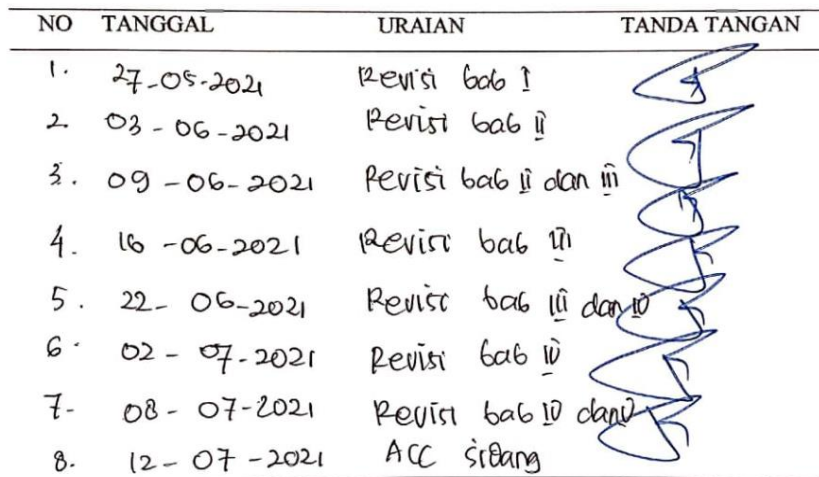 NO TANGGAL URAIAN TANDA TANGAN
1. 27-05-2021 Revisi bab I
2. 03-06-2021 Revisi bab II
3. 09-06-2021 Revisi bab II dan III
4. 16-06-2021 Revisi bab III
5. 22-06-2021 Revisi bab III dan IV
6. 02-07-2021 Revisi bab IV
7. 08-07-2021 Revisi bab IV dan V
8. 12-07-2021 ACC Sidang